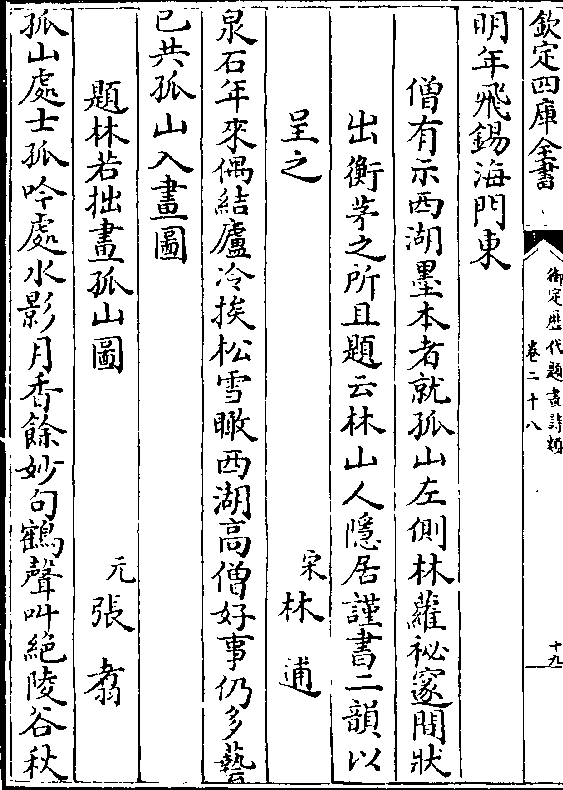 欽定四庫全書
御定歴代題畫詩類
卷二十八
十九
明年飛錫海門東
僧有示西湖墨本者就孤山左側林蘿祕邃間狀
出衡茅之所且題云林山人隱居謹書二韻以
呈之
宋林逋
泉石年來偶結廬冷挨松雪瞰西湖高僧好事仍多藝
已共孤山入畫圖
題林若拙畫孤山圖
元張翥
孤山處士孤吟處水影月香餘妙句鶴聲叫絕陵谷秋